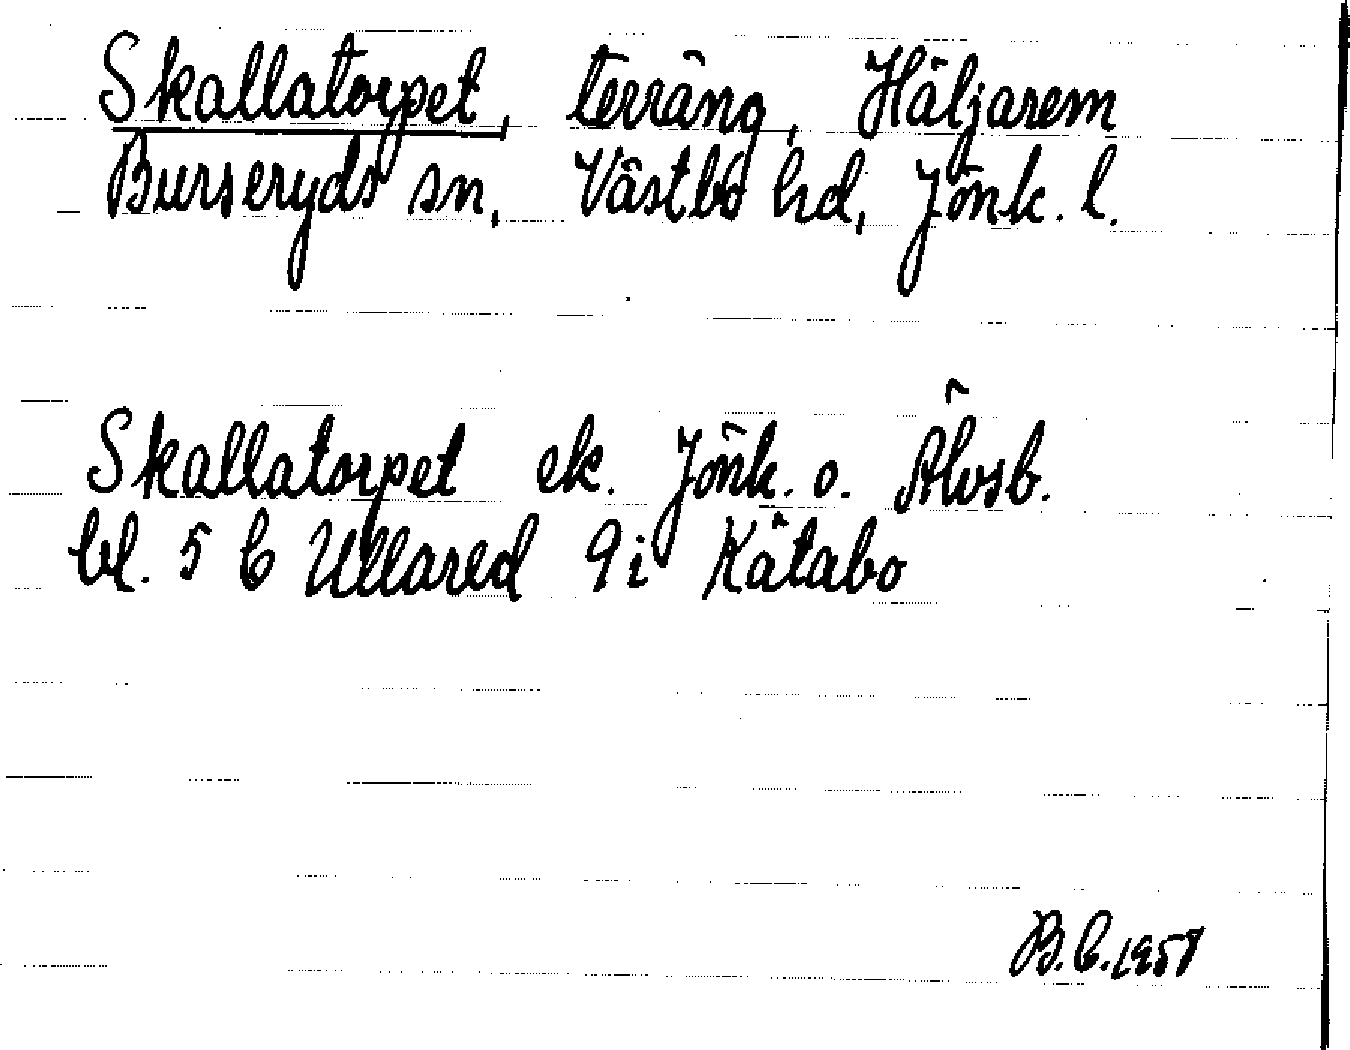 Skallatorpet, terräng, Häljarem
Burseryds sn, Västbo hd, Jönk. l.
Skallatorpet ek. Jönk. o. Älvsb.
bl. 5 C Ullared 9i Kåtabo
B.C. 1958